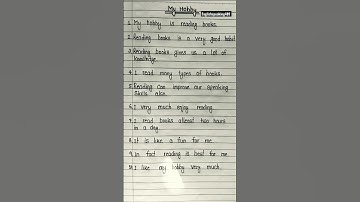 My Hobby
1. My hobby is reading books.
2. Reading books is a very good habit
3. Reading books gives us a lot of
knowledge.
4. I read many types of books.
5. Reading can improve our speaking
skills also.
6. I very much enjoy reading.
7. I read books atleast two hours
in a day.
8. It is like a fun for me.
9. In fact reading is best for me.
10. I like my hobby very much.